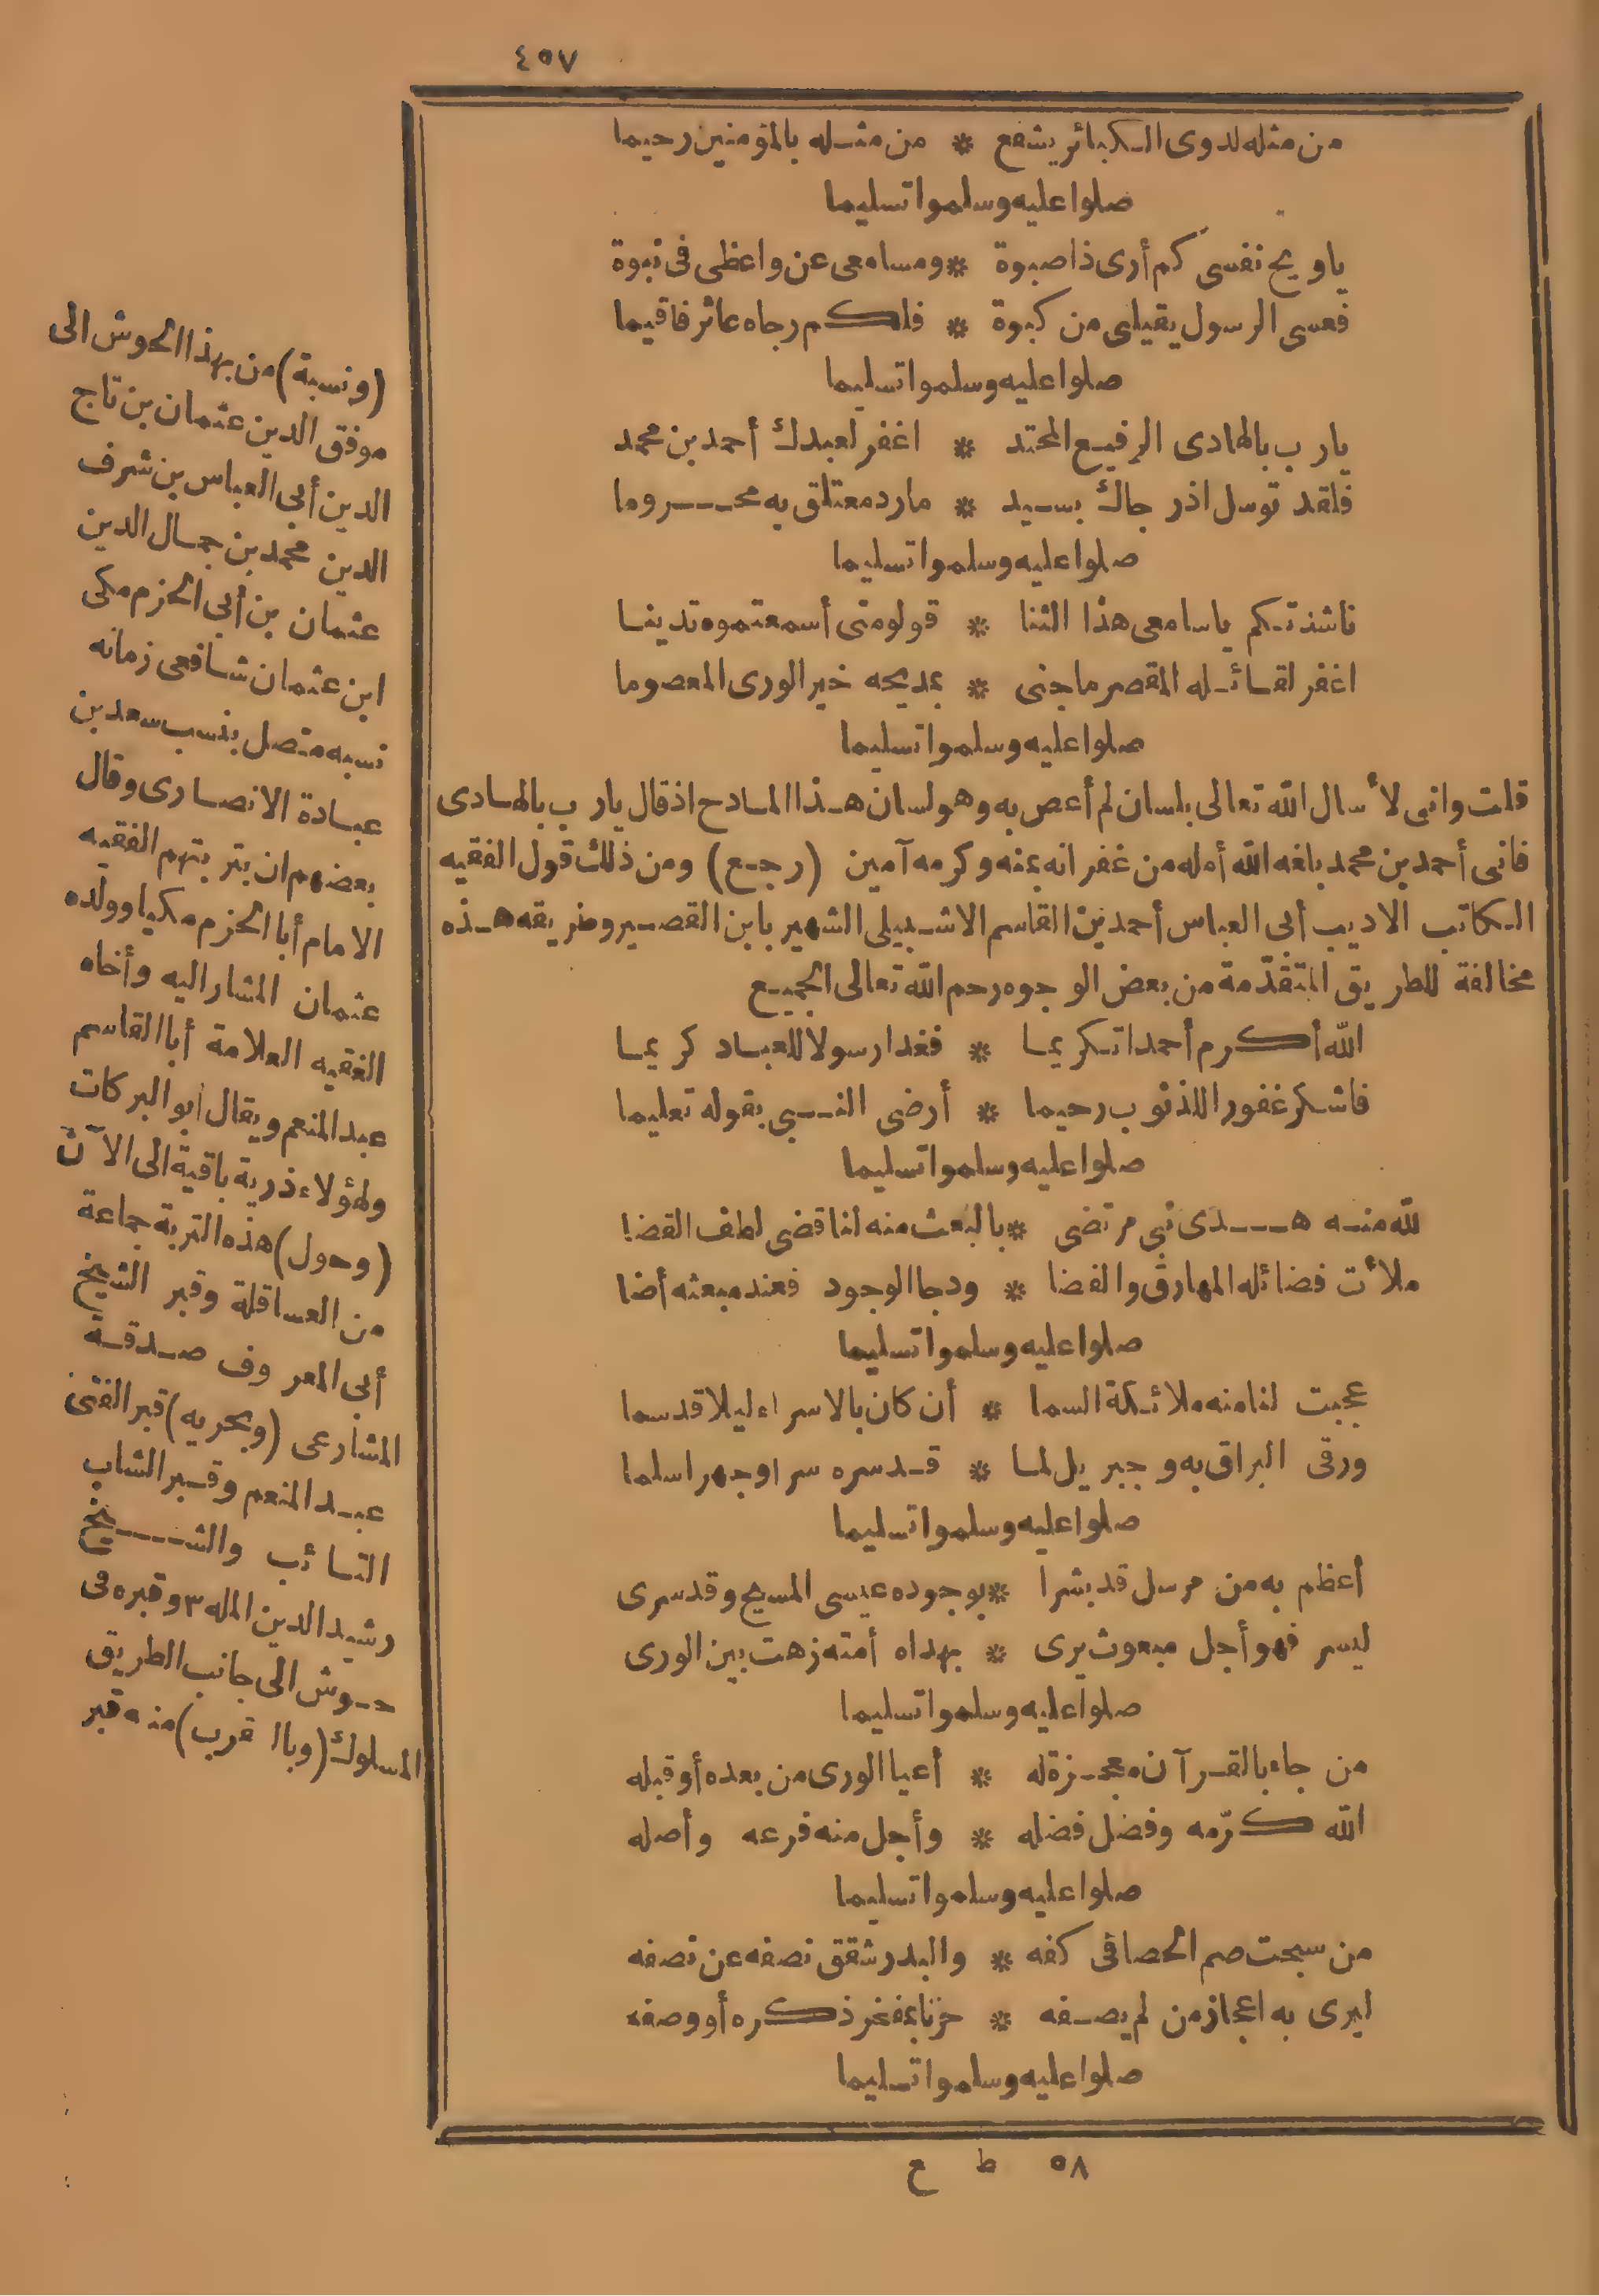 ٤٥٧
من مثله لذوى الكبائر يشفع * من مثله بالمؤمنين رحيما
صلوا عليه وسلموا تسليما
ياويح نفسى كم أرى ذا صبوة * ومسامعى عن واعظى فى نبوة
فعسى الرسول يقيلنى من كبوة * فلكم رجاه عاثر فاقيما
صلوا عليه وسلموا تسليما
يارب بالهادى الرفيع المحتد * اغفر لعبدك أحمد بن محمد
فلقد توسل اذ رجاك بسيد * مارد معتلق به محروما
صلوا عليه وسلموا تسليما
ناشدتكم ياسامعى هذا الثنا * قولو متى أسمعتموه تدينا
اغفر لقائله المقصر ماجنى * بمديحه خير الورى المعصوما
صلوا عليه وسلموا تسليما
قلت وانى لأسال الله تعالى بلسان لم أعص به وهو لسان هذا المادح اذ قال يارب بالهادى
فانى أحمد بن محمد بلغه الله أمله من غفرانه بمنه وكرمه آمين (رجع) ومن ذلك قول الفقيه
الكاتب الاديب أبى العباس أحمد بن القاسم الاشبيلى الشهير بابن القصير وطريقه هذه
مخالفة للطريق المتقدّمة من بعض الوجوه رحم الله تعالى الجميع
الله أكرم أحمدا تكريما * فغدا رسولا للعباد كريما
فاشكر غفورا للذنوب رحيما * أرضى النبى بقوله تعليما
صلوا عليه وسلموا تسليما
لله منه هدى نبى مرتضى * بالبعث منه لنا قضى لطف القضا
ملأت فضائله المهارق والفضا * ودجا الوجود فعند مبعثه أضا
صلوا عليه وسلموا تسليما
عجبت لنا منه ملائكة السما * أن كان بالاسراء ليلا قد سما
ورقى البراق به وجبريل لما * قد سره سرا وجهرا سلما
صلوا عليه وسلموا تسليما
أعظم به من مرسل قد بشرا * بوجوده عيسى المسيح وقد سرى
ليسر فهو أجل مبعوث يرى * بهداه أمته زهت بين الورى
صلوا عليه وسلموا تسليما
من جاء بالقرآن معجزة له * أعيا الورى من بعده أو قبله
الله كرّمه وفضل فضله * وأجل منه فرعه وأصله
صلوا عليه وسلموا تسليما
من سبحت صم الحصا فى كفه * والبدر شقق نصفه عن نصفه
ليرى به اعجاز من لم يصفه * حزنا بمفخر ذكره أو وصفه
صلوا عليه وسلموا تسليما
٥٨ ط ع
(ونسبة) من بهذا الحوش الى
موفق الدين عثمان بن تاج
الدين أبى العباس بن شرف
الدين محمد بن جمال الدين
عثمان بن أبى الحزم مكى
ابن عثمان شافعى زمانه
نسبه متصل بنسب سعد بن
عبادة الانصارى وقال
بعضهم ان بتربتهم الفقيه
الامام أبا الحزم مكيا وولده
عثمان المشار اليه وأخاه
الفقيه العلامة أبا القاسم
عبد المنعم ويقال أبو البركات
ولهؤلاء ذرية باقية الى الآن
(وحول) هذه التربة جماعة
من العساقلة وقبر الشيخ
أبى المعروف صدقة
المشارعى (وبحريه) قبر الفتى
عبد المنعم وقبر الشاب
التائب والشيخ
رشيد الدين وقبره فى
حوش الى جانب الطريق
المسلوك (وبالقرب) منه قبر